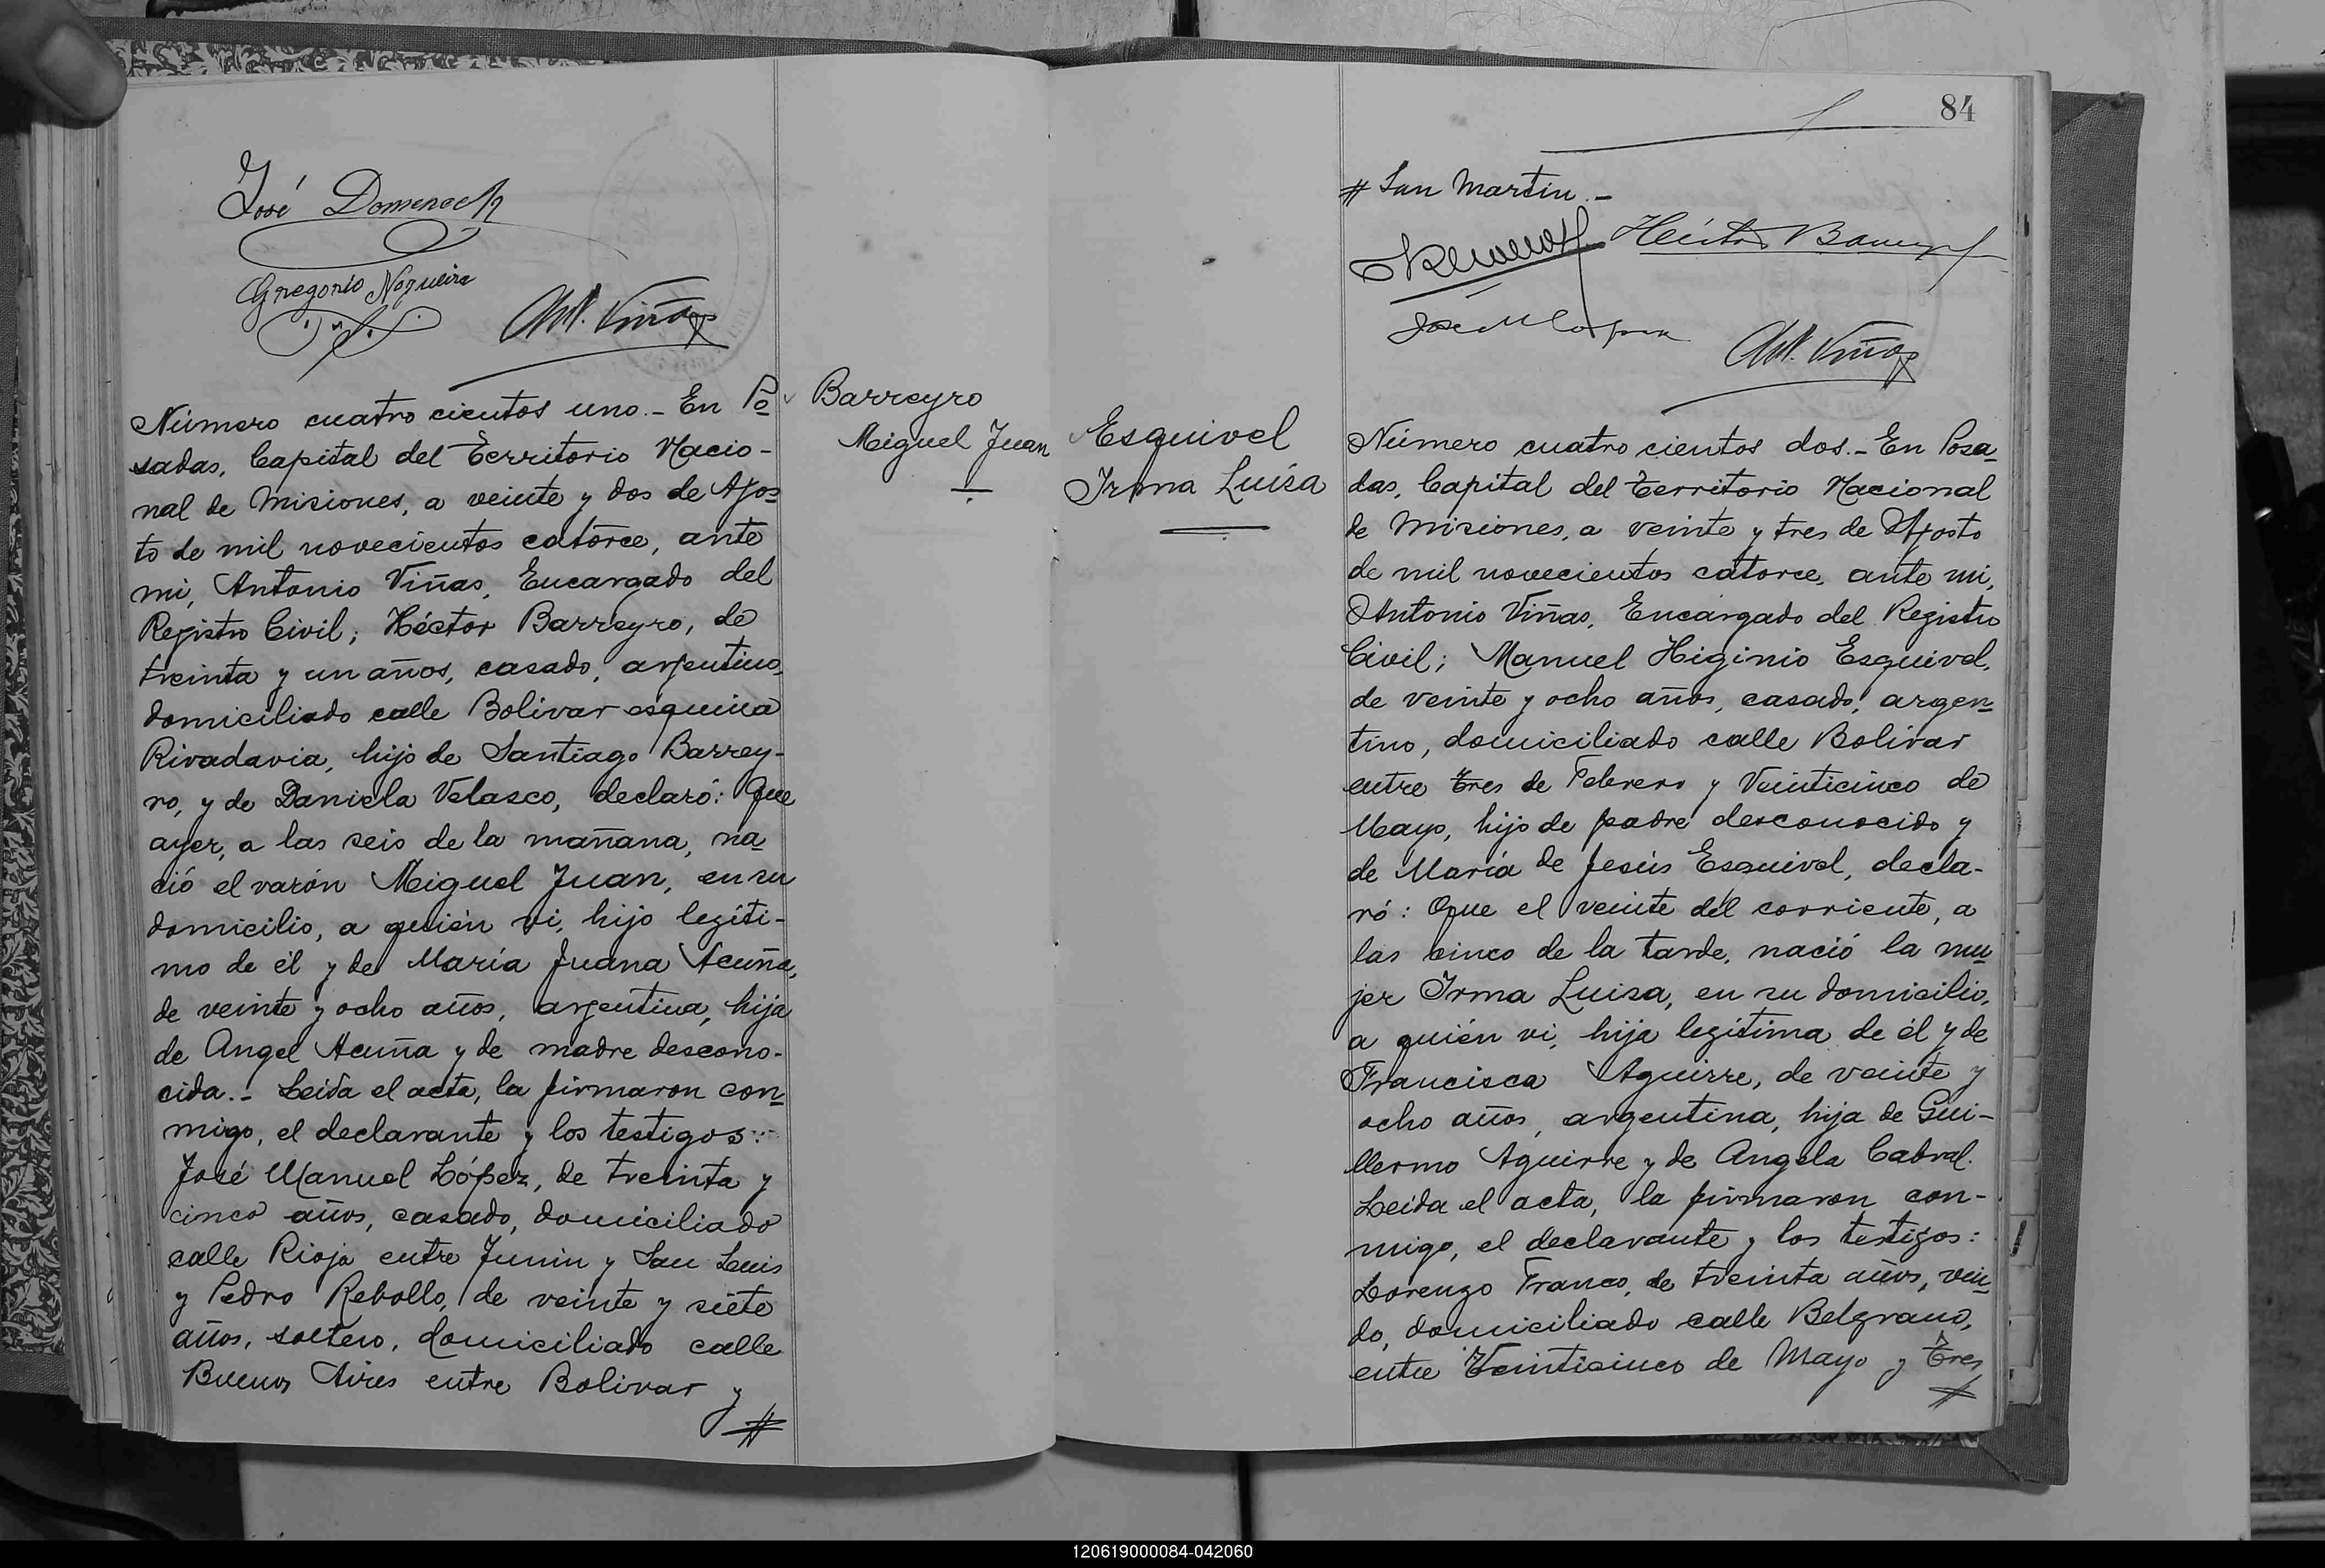 José Domenech
Gregorio Nogueira
Ant. Viñas
Número cuatro cientos uno.- En Po
sadas, Capital del Territorio Nacio-
nal de Misiones, a veinte y dos de Agos
to de mil novecientos catorce, ante
mi, Antonio Viñas, Encargado del
Registro Civil; Héctor Barreyro, de
treinta y un años, casado, argentino,
domiciliado calle Bolivar esquina
Rivadavia, hijo de Santiago Barrey-
ro, y de Daniela Velasco, declaró: Que
ayer, a las seis de la mañana, na
ció el varón Miguel Juan, en su
domicilio, a quién vi, hijo legíti-
mo de él y de María Juana Acuña,
de veinte y ocho años, argentina, hija
de Angel Acuña y de madre descono-
cida.- Leida el acta, la firmaron con
migo, el declarante y los testigos:
José Manuel López, de treinta y
cinco años, casado, domiciliado
calle Rioja entre Junin y San Luis
y Pedro Rebollo, de veinte y siete
años, soltero, domiciliado calle
Buenos Aires entre Bolivar y
#
Barreyro
Miguel Juan
84
# San Martin.-
Héctor Barreyro
José M López
Ant. Viñas
Esquivel
Irma Luisa
Número cuatro cientos dos.- En Posa
das, Capital del Territorio Nacional
de Misiones, a veinte y tres de Agosto
de mil novecientos catorce, ante mi,
Antonio Viñas, Encargado del Registro
Civil; Manuel Higinio Esquivel,
de veinte y ocho años, casado, argen
tino, domiciliado calle Bolivar
entre Tres de Febrero y Veinticinco de
Mayo, hijo de padre desconocido y
de María de Jesús Esquivel, decla-
ró: Que el veinte del corriente, a
las cinco de la tarde, nació la mu
jer Irma Luisa, en su domicilio,
a quién vi, hija legítima de él y de
Francisca Aguirre, de veinte y
ocho años, argentina, hija de Gui-
llermo Aguirre y de Angela Cabral.
Leida el acta, la firmaron con-
migo, el declarante y los testigos:
Lorenzo Franco, de treinta años, viu
do, domiciliado calle Belgrano,
entre Veinticinco de Mayo y Tres
#
120619000084-042060